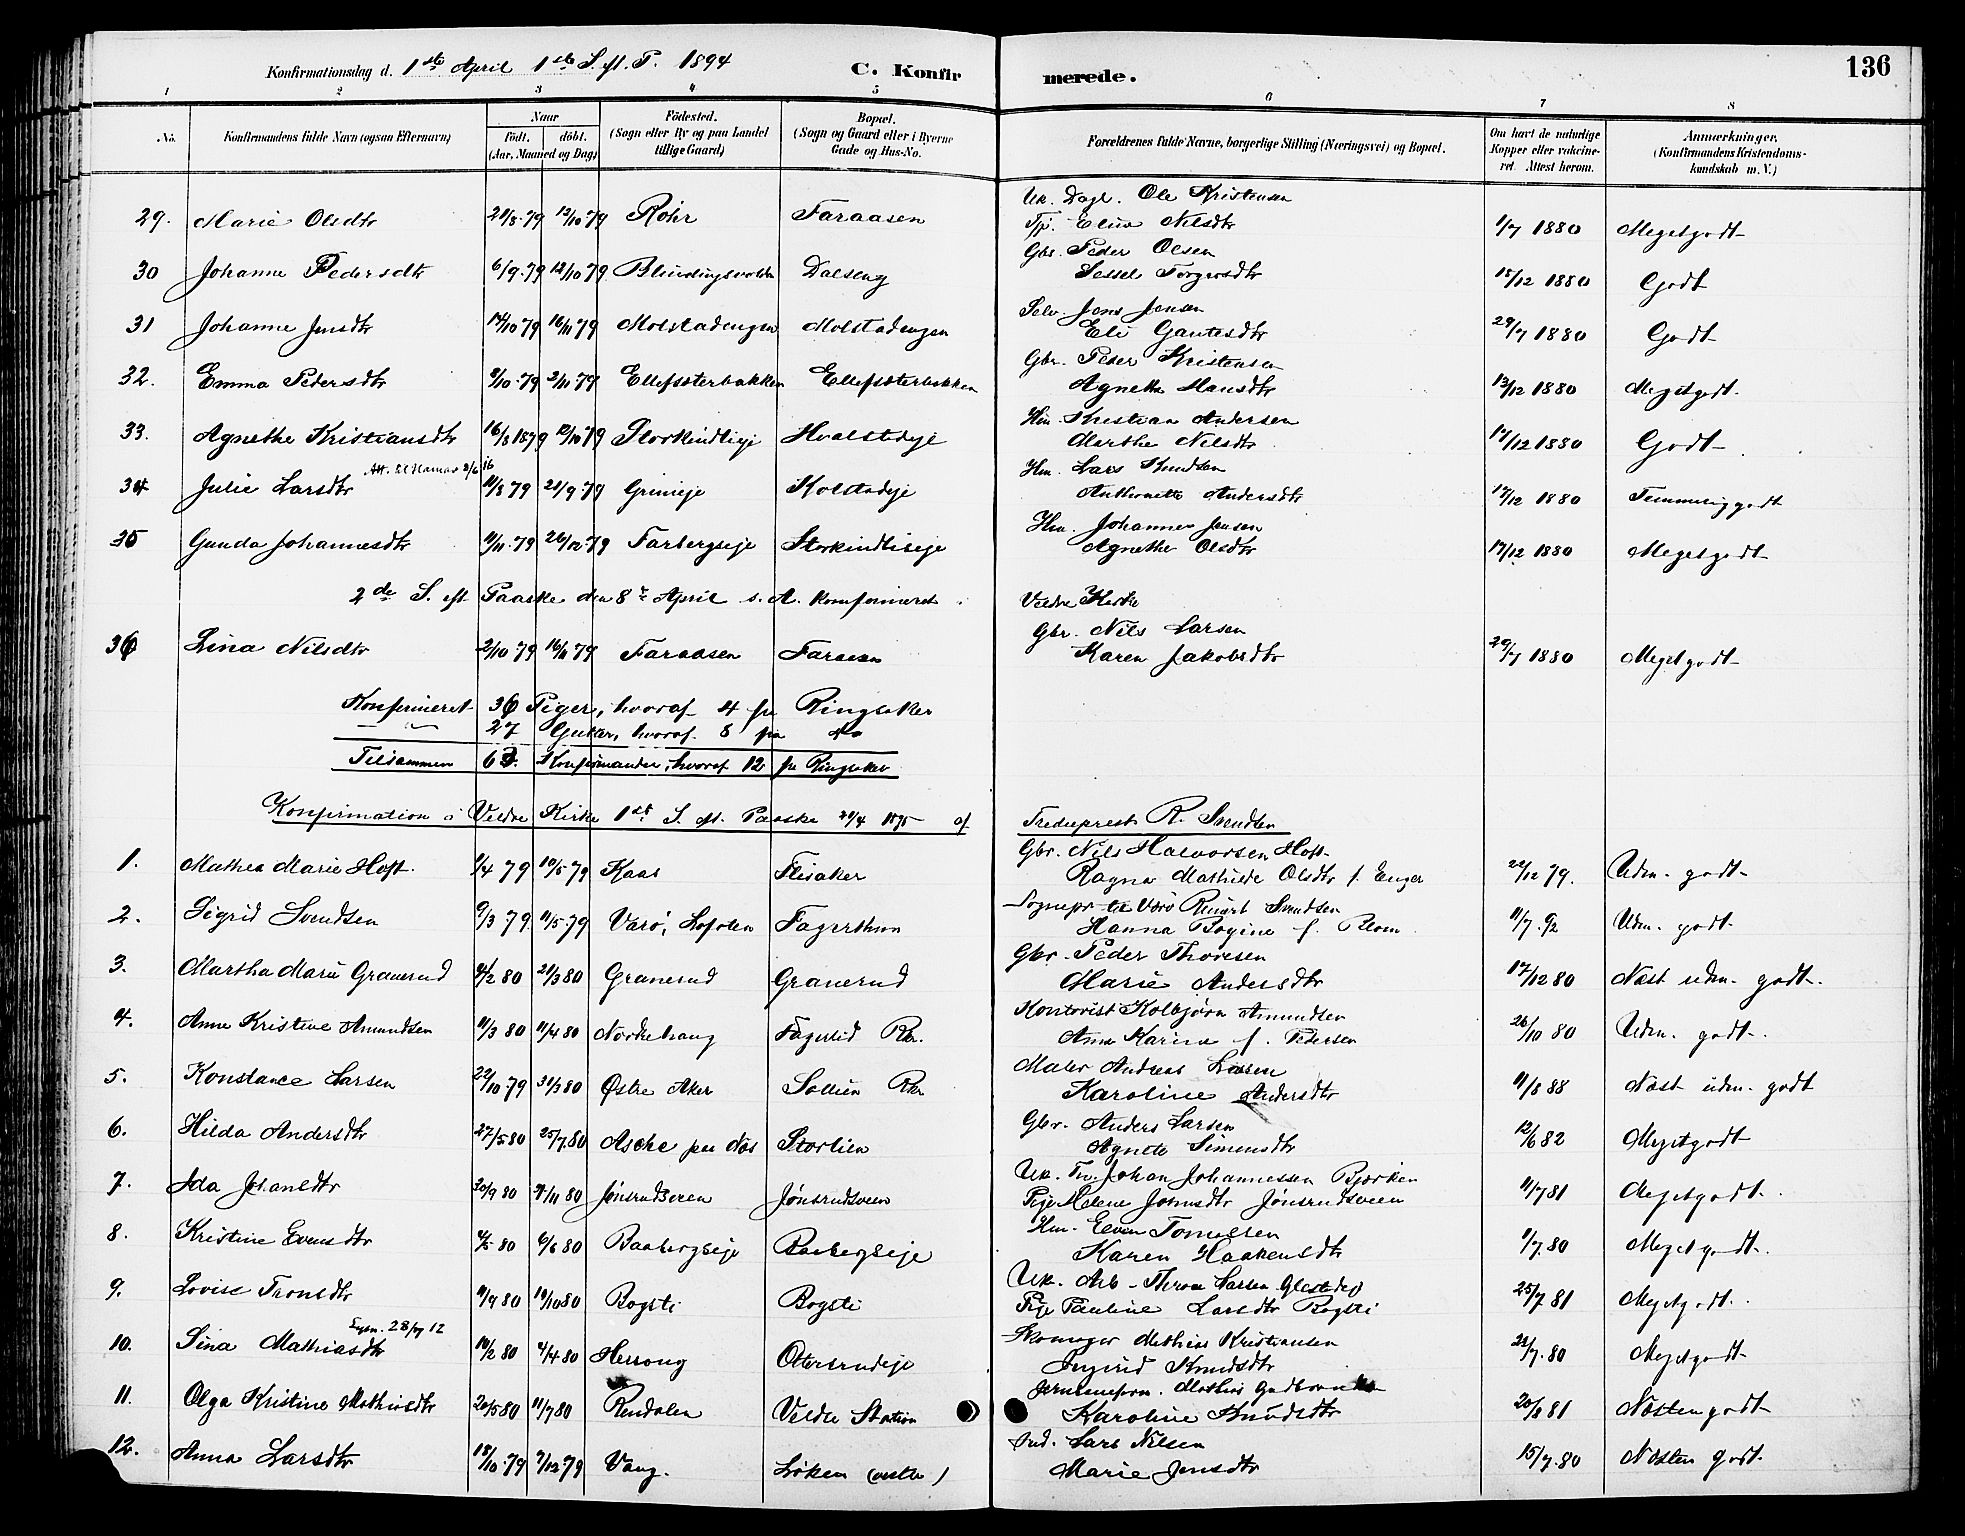 136
Konfirmationsdag d. 1ste April 1ste S. eft. P. 1894 C. Konfirmerede.
1 2 3 4 5 6 7 8
No. Konfirmandens fulde Navn (ogsaa Efternavn) Naar Födt. döbt. (Aar, Maaned og Dag) Födested. (Sogn eller By og paa Landet tillige Gaard) Bopæl. (Sogn og Gaard eller i Byerne Gade og Hus-No. Forældrenes fulde Navne, borgerlige Stilling (Næringsvei) og Bopæl. Om havt de naturlige Kopper eller vakcineret. Attest herom. Anmærkninger. (Konfirmandens Kristendomskundskab m. V.)
Uk. Dagl. Ole Kristensen
29. Marie Olsdtr 12/10 79 Röhr Faraasen Tjp. Nilsdtr 1/7 1880 Megetgodt
Gbr. Peder Olsen
30 Johanne Pedersdtr 6/9 79 12/10 79 Dalseng Sessel Torgersdtr 15/12 1880 Godt
Selv. Jens Jensen
31 Johanne Jensdtr 14/10 79 16/11 79 Molstadengen Molstadengen Eli Gautesdtr 29/7 1880 Godt
Gbr. Peder Kristensen
32. Emma Pedersdtr 9/10 79 2/11 79 Ellefsæterbakken Ellefsæterbakken Agnethe Hansdtr 13/12 1880 Megetgodt.
Hm. Kristian Andersen
33. Agnethe Kristiansdtr 16/8 1879 12/10 79 Storkindlieje Hvalstadeje Marthe Nilsdtr 17/12 1880 Godt
Att. til Hamar 2/6 16 Hm. Lars Knudsen
34 Julie Larsdtr 11/8 79 21/9 79 Grimeje Kolstadeje Andersdtr 17/12 1880 Temmeliggodt
Hm. Johannes Jensen
35 Gunda Johannesdtr 11/11 79 26/12 79 Farbergseje Storkindlieeje Agnethe Olsdtr 17/12 1880 Megetgodt
2de S. eft. Paaske den 8de April s. A. konfirmeret i Veldre Kirke
Gbr. Nils Larsen
36 Lina Nilsdtr 2/10 79 16/11 79 Faraasen Faraasen Karen Jakobsdtr 29/7 1880 Megetgodt
Konfirmeret 36 Piger, hvoraf 4 fra Ringsaker
27 Gutter, hvoraf 8 fra do
Tilsammen 63. Konfirmander, hvoraf 12 fra Ringsaker
Konfirmation i Veldre Kirke 1ste S. eft. Paaske 21/4 1895 af Fredieprest R. Svendsen
Gbr. Nils Halvorsen Hoft
1. Mathea Marie Hoft. 1/4 79 10/5 79 Kaas Flisaker Ragna Mathilde Olsdtr f. Enger 22/12 79. Udm. godt
Sognepr. til Værö Svendsen
2. Sigrid Svendsen 9/3 79 11/5 79 Værö, Lofoten Fagerthun Hanna Bogine f. Blom 11/7 92 Udm. godt.
Gbr. Peder Thoresen
3. Martha Marie Granerud 4/2 80 21/3 80 Granerud Granerud Marie Andersdtr 17/12 80 Næst udm. godt.
Kontorist Kolbjørn Amundsen
4. Anne Kristine Amundsen 11/3 80 11/4 80 Norkehaug Fagerlid Rkr. Anne Karine f. Pedersen 26/10 80 Udm. godt.
Maler Andreas Larsen
5. Konstance Larsen 22/10 79 31/3 80 Østre Aker Sollien Rkr Karoline Andersdtr 11/8 88 Næst udm. godt
Gbr. Anders Larsen
6. Hilda Andersdtr 27/5 80 25/7 80 Aske paa Næs Storlien Agnete Simensdtr 12/6 82 Megetgodt
Uk. Johan Johannessen Bjørken
7. Ida Johansdtr 20/9 80 7/11 80 Jønsrudveen Jønsrudsveen Pige Helene Johnsdtr Jønsrudsveen 11/7 81 Megetgodt.
Hm. Even Tomessen
8. Kristine Evensdtr 4/5 80 6/6 80 Baabergseje Baabergseje Karen Haakensdtr 1/7 80 Megetgodt.
Uk. Arb. Thron Larsen
9. Lovise Tronsdtr 11/9 80 10/10 80 Bogsti Bogsti Pige Pauline Larsdtr Bogsti 25/7 81 Megetgodt.
28/7 12 Skomager Mathias Kristiansen
10. Sina Mathiasdtr 10/2 80 4/4 80 Ingrid Knudsdtr 21/7 80 Megetgodt
Mathias Gudbrandsen
11. Olga Kristine Mathiasdtr 20/5 80 11/7 80 Rendalen Veldre Station Karoline Knudsdtr 20/8 81 Næstengodt
Ind. Lars Nilsen
12. Anna Larsdtr 18/10 79 7/12 79 Vang. Løken (vestre) Marie Jensdtr 15/7 80 Næsten godt.